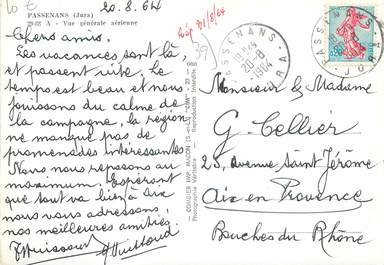 10 €
PASSENANS (Jura)
20.8.64
Vue générale aérienne
Chers amis.
Les vacances sont là,
et passent vite. Le
temps est beau et nous
jouissons du calme de
la campagne, la région
ne manque pas de
promenades intéressantes
Nous nous reposons au
maximum. Espérant
que tout va bien à Aix
nous vous adressons
nos meilleures amitiés.
39
PASSENANS
20-8
1964
JURA
COMBIER IMP. MACON
Photographie Véritable - Reproduction Interdite
Monsieur & Madame
G. Cellier
25, avenue Saint Jérome
Aix en Provence
Bouches du Rhône